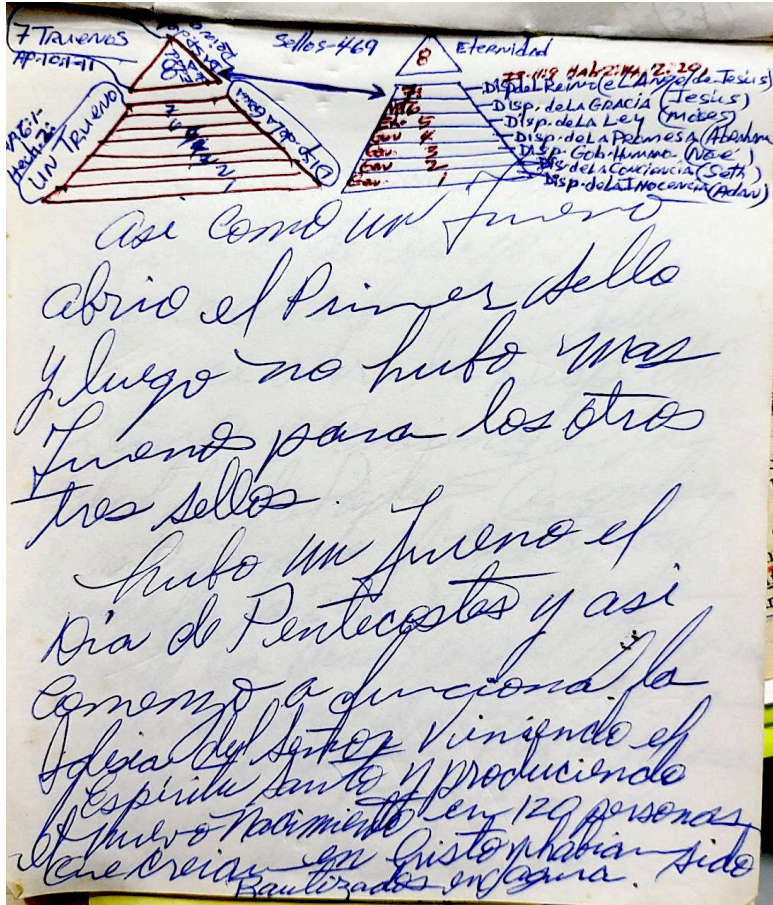 7 Truenos
Ap-10:1-11
Sellos-469
8
Eternidad
UN TRUENO
Disp. de la Gracia
8
7
6
5
4
3
2
1
Disp. de la GRACIA (Jesús)
Disp. de La Ley (Moises)
Disp. de LA PROMESA (Abraham)
Disp. Gob. Humano (Noé)
Dis. de la Conciencia (Seth)
Disp. de la INOCENCIA (Adan)
Asi como un trueno
abrio el Primer Sello
y luego no hubo mas
truenos para los otros
tres sellos.
hubo un trueno el
Dia de Pentecostes y asi
comenzo a funcionar la
Iglesia del Señor viniendo el
Espiritu Santo y produciendo
el nuevo Nacimiento en 120 personas
que creian en Cristo y habian sido
Bautizados en agua.